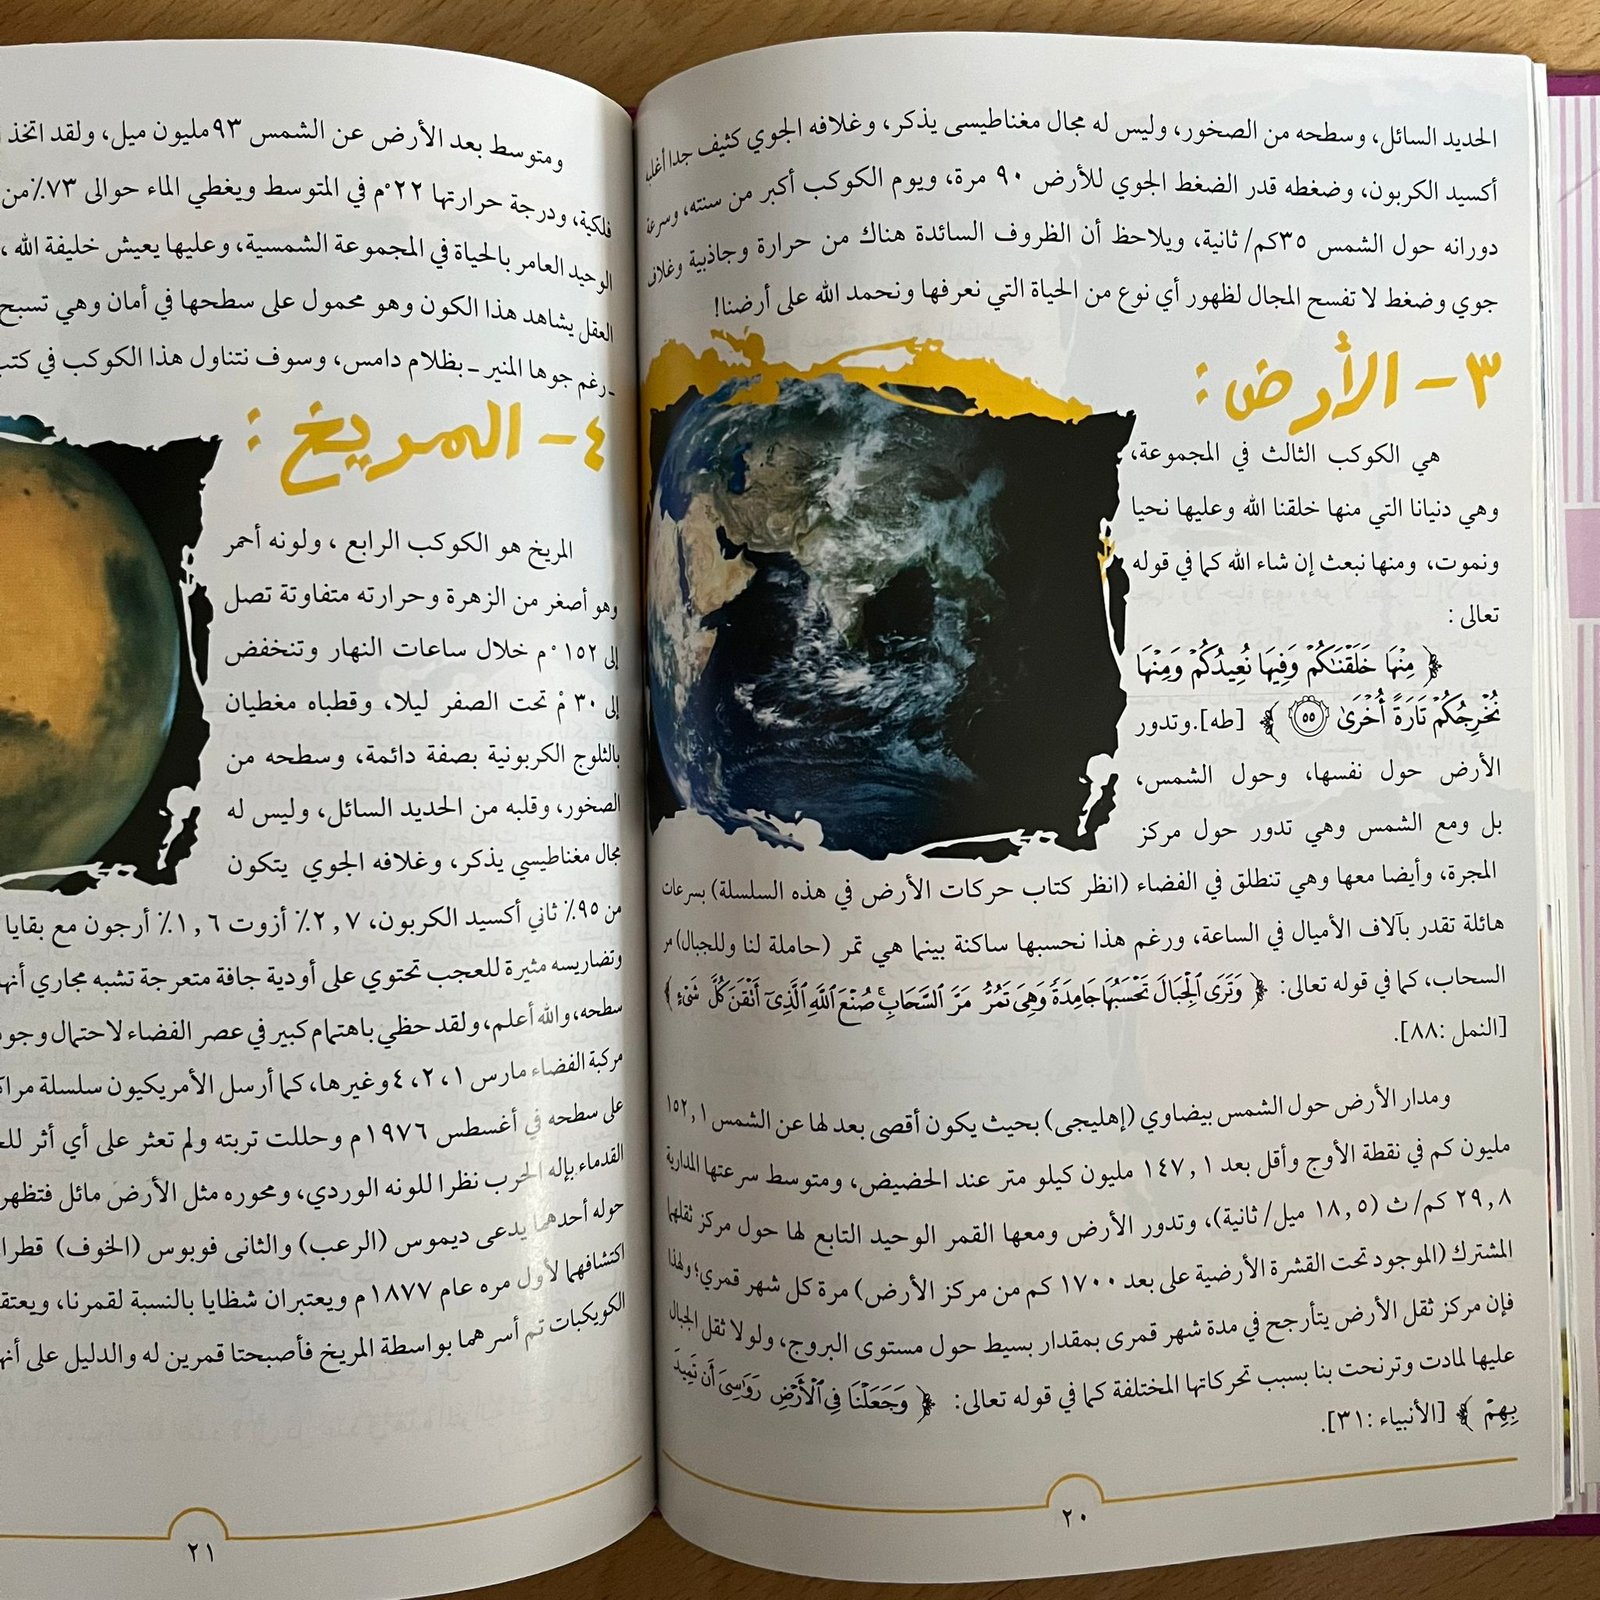 الحديد السائل، وسطحه من الصخور، وليس له مجال مغناطيسى يذكر، وغلافه الجوي كثيف جدا أغلبه
أكسيد الكربون، وضغطه قدر الضغط الجوي للأرض ٩٠ مرة، ويوم الكوكب أكبر من سنته، وسرعة
دورانه حول الشمس ٣٥كم/ ثانية، ويلاحظ أن الظروف السائدة هناك من حرارة وجاذبية وغلاف
جوي وضغط لا تفسح المجال لظهور أي نوع من الحياة التي نعرفها ونحمد الله على أرضنا!
٣ - الأرض:
هي الكوكب الثالث في المجموعة،
وهي دنيانا التي منها خلقنا الله وعليها نحيا
ونموت، ومنها نبعث إن شاء الله كما في قوله
تعالى :
﴿ مِنْهَا خَلَقْنَٰكُمْ وَفِيهَا نُعِيدُكُمْ وَمِنْهَا
نُخْرِجُكُمْ تَارَةً أُخْرَىٰ ٥٥ ﴾ [طه].وتدور
الأرض حول نفسها، وحول الشمس،
بل ومع الشمس وهي تدور حول مركز
المجرة، وأيضا معها وهي تنطلق في الفضاء (انظر كتاب حركات الأرض في هذه السلسلة) بسرعات
هائلة تقدر بآلاف الأميال في الساعة، ورغم هذا نحسبها ساكنة بينما هي تمر (حاملة لنا وللجبال) مر
السحاب، كما في قوله تعالى: ﴿ وَتَرَى ٱلْجِبَالَ تَحْسَبُهَا جَامِدَةً وَهِىَ تَمُرُّ مَرَّ ٱلسَّحَابِ ۚ صُنْعَ ٱللَّهِ ٱلَّذِىٓ أَتْقَنَ كُلَّ شَىْءٍ ﴾
[النمل :٨٨].
ومدار الأرض حول الشمس بيضاوي (إهليجى) بحيث يكون أقصى بعد لها عن الشمس ١٥٢,١
مليون كم في نقطة الأوج وأقل بعد ١٤٧,١ مليون كيلو متر عند الحضيض، ومتوسط سرعتها المدارية
٢٩,٨ كم/ث (١٨,٥ ميل/ ثانية)، وتدور الأرض ومعها القمر الوحيد التابع لها حول مركز ثقلهما
المشترك (الموجود تحت القشرة الأرضية على بعد ١٧٠٠ كم من مركز الأرض) مرة كل شهر قمري؛ ولهذا
فإن مركز ثقل الأرض يتأرجح في مدة شهر قمرى بمقدار بسيط حول مستوى البروج، ولولا ثقل الجبال
عليها لمادت وترنحت بنا بسبب تحركاتها المختلفة كما في قوله تعالى: ﴿ وَجَعَلْنَا فِى ٱلْأَرْضِ رَوَٰسِىَ أَن تَمِيدَ
بِهِمْ ﴾ [الأنبياء :٣١].
٢٠
ومتوسط بعد الأرض عن الشمس ٩٣مليون ميل، ولقد اتخذ
فلكية، ودرجة حرارتها ٢٢°م في المتوسط ويغطي الماء حوالى ٧٣٪من
الوحيد العامر بالحياة في المجموعة الشمسية، وعليها يعيش خليفة الله ،
العقل يشاهد هذا الكون وهو محمول على سطحها في أمان وهي تسبح
ـ رغم جوها المنير ـ بظلام دامس، وسوف نتناول هذا الكوكب في
٤ - المريخ :
المريخ هو الكوكب الرابع ، ولونه أحمر
وهو أصغر من الزهرة وحرارته متفاوتة تصل
إلى ١٥٢°م خلال ساعات النهار وتنخفض
إلى ٣٠ مْ تحت الصفر ليلا، وقطباه مغطيان
بالثلوج الكربونية بصفة دائمة، وسطحه من
الصخور، وقلبه من الحديد السائل، وليس له
مجال مغناطيسي يذكر، وغلافه الجوي يتكون
من ٩٥٪ ثاني أكسيد الكربون، ٢,٧٪ أزوت ١,٦٪ أرجون مع بقايا
وتضاريسه مثيرة للعجب تحتوي على أودية جافة متعرجة تشبه مجاري
سطحه، والله أعلم، ولقد حظي باهتمام كبير في عصر الفضاء لاحتمال
مركبة الفضاء مارس ١، ٢، ٤ وغيرها، كما أرسل الأمريكيون سلسلة
على سطحه في أغسطس ١٩٧٦م وحللت تربته ولم تعثر على أي أثر
القدماء بإله الحرب نظرا للونه الوردي، ومحوره مثل الأرض مائل
حوله أحدهما يدعى ديموس (الرعب) والثانى فوبوس (الخوف)
اكتشافهما لأول مره عام ١٨٧٧م ويعتبران شظايا بالنسبة لقمرنا،
الكويكبات تم أسرهما بواسطة المريخ فأصبحتا قمرين له والدليل على
٢١